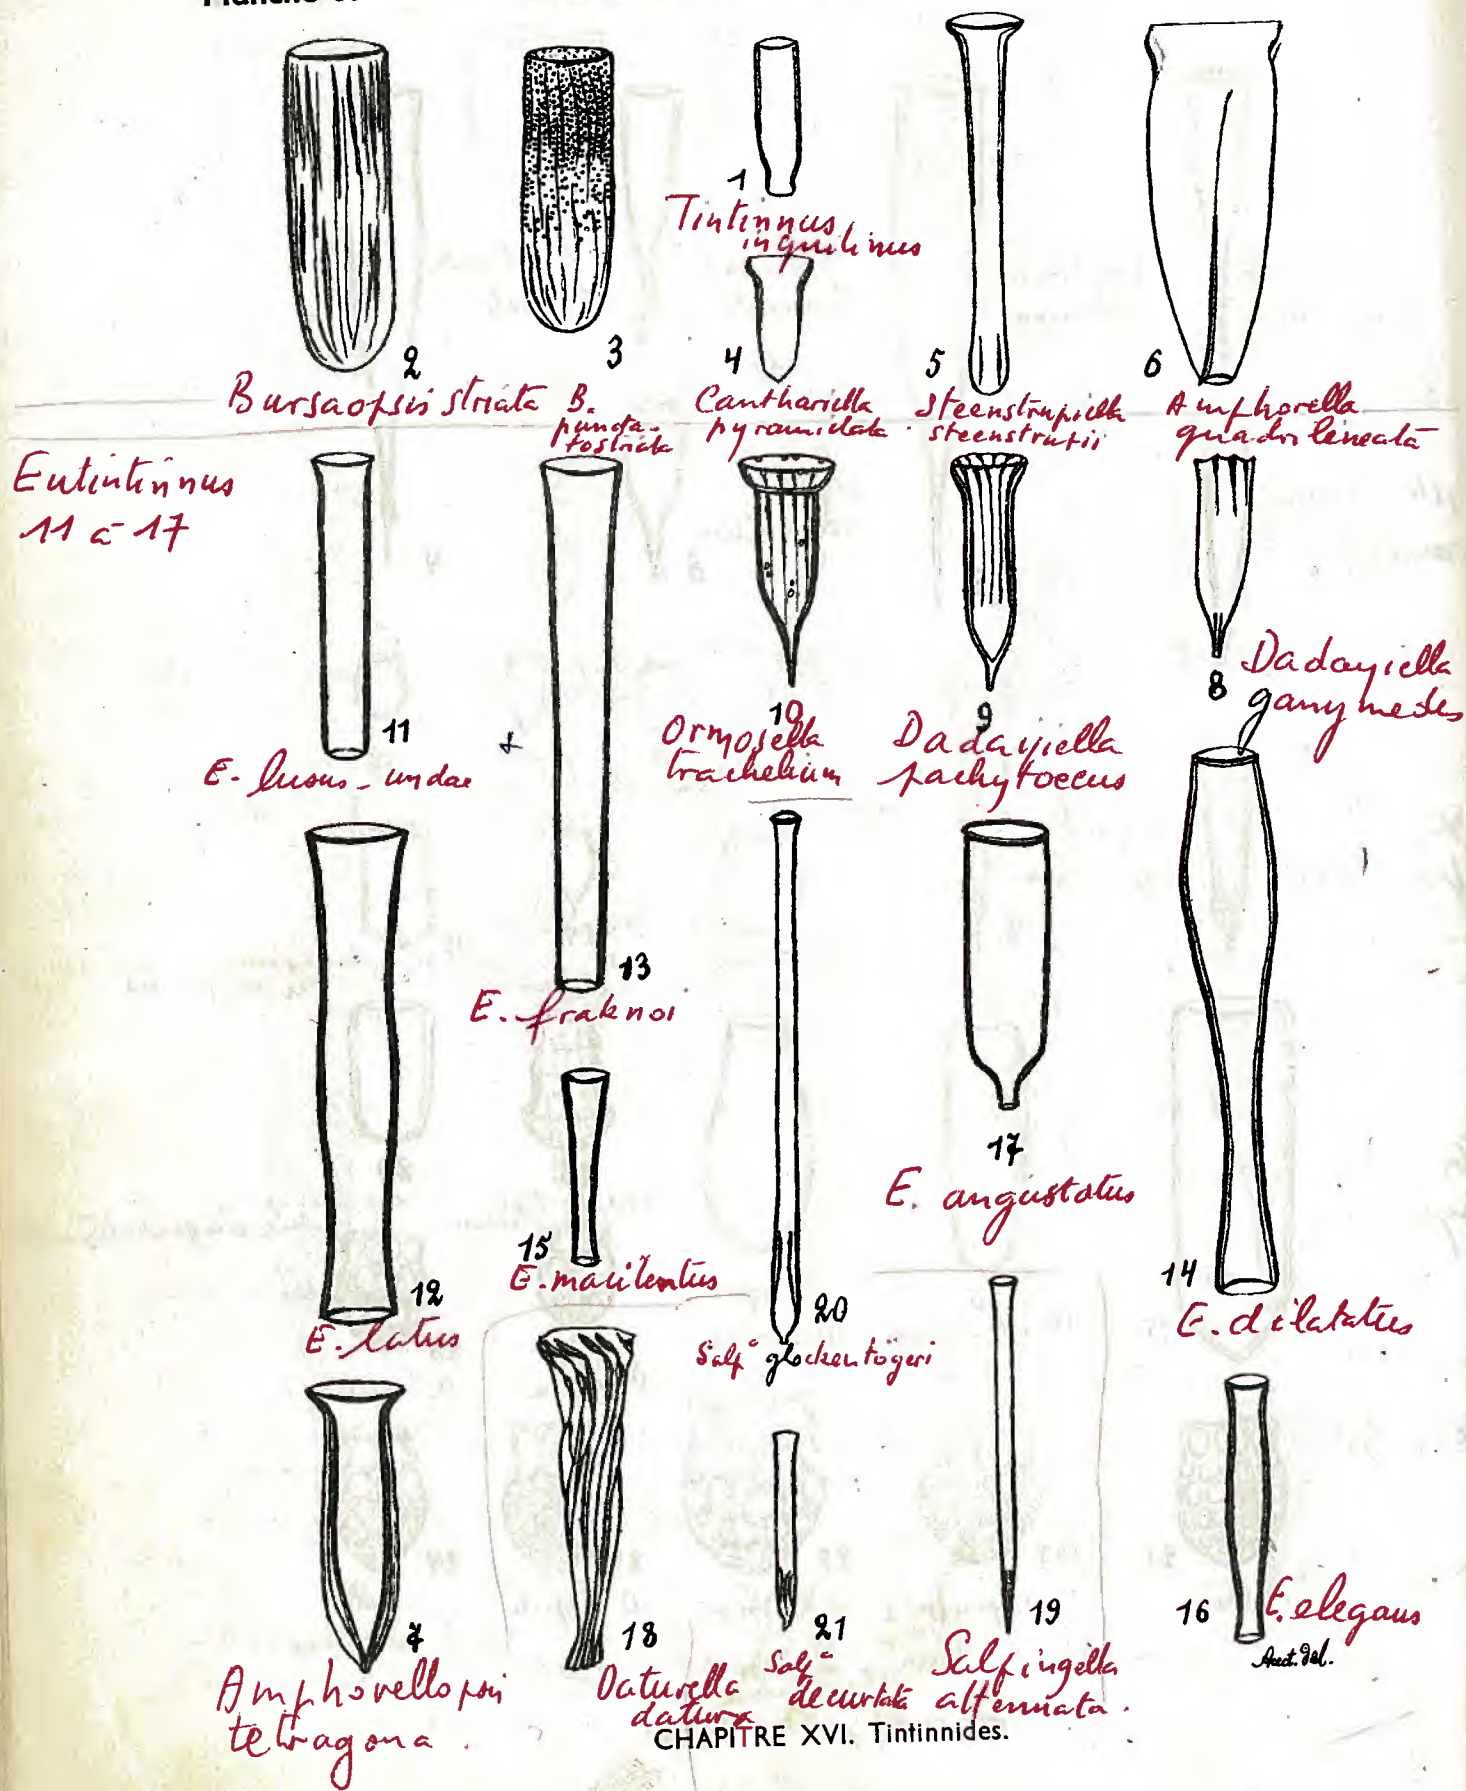 1
Tintinnus
inquilinus
2
3
4
5
6
Bursaopsis striata
B.
puncta-
tostriata
Canthariella
pyramidata
Steenstrupiella
steenstrupii
Amphorella
quadrilineata
Eutintinnus
11 à 17
11
E. lusus-undae
10
Ormosella
trachelium
9
Dadayiella
pachytoecus
8
Dadayiella
ganymedes
13
E. fraknoi
17
E. angustatus
15
E. macilentus
12
E. latus
20
Salpª glockentögeri
14
E. dilatatus
7
Amphorellopsis
tetragona.
18
Daturella
datura
21
Salpª
decurtata
19
Salpingella
attenuata.
16
E. elegans
Auct. del.
CHAPITRE XVI. Tintinnides.